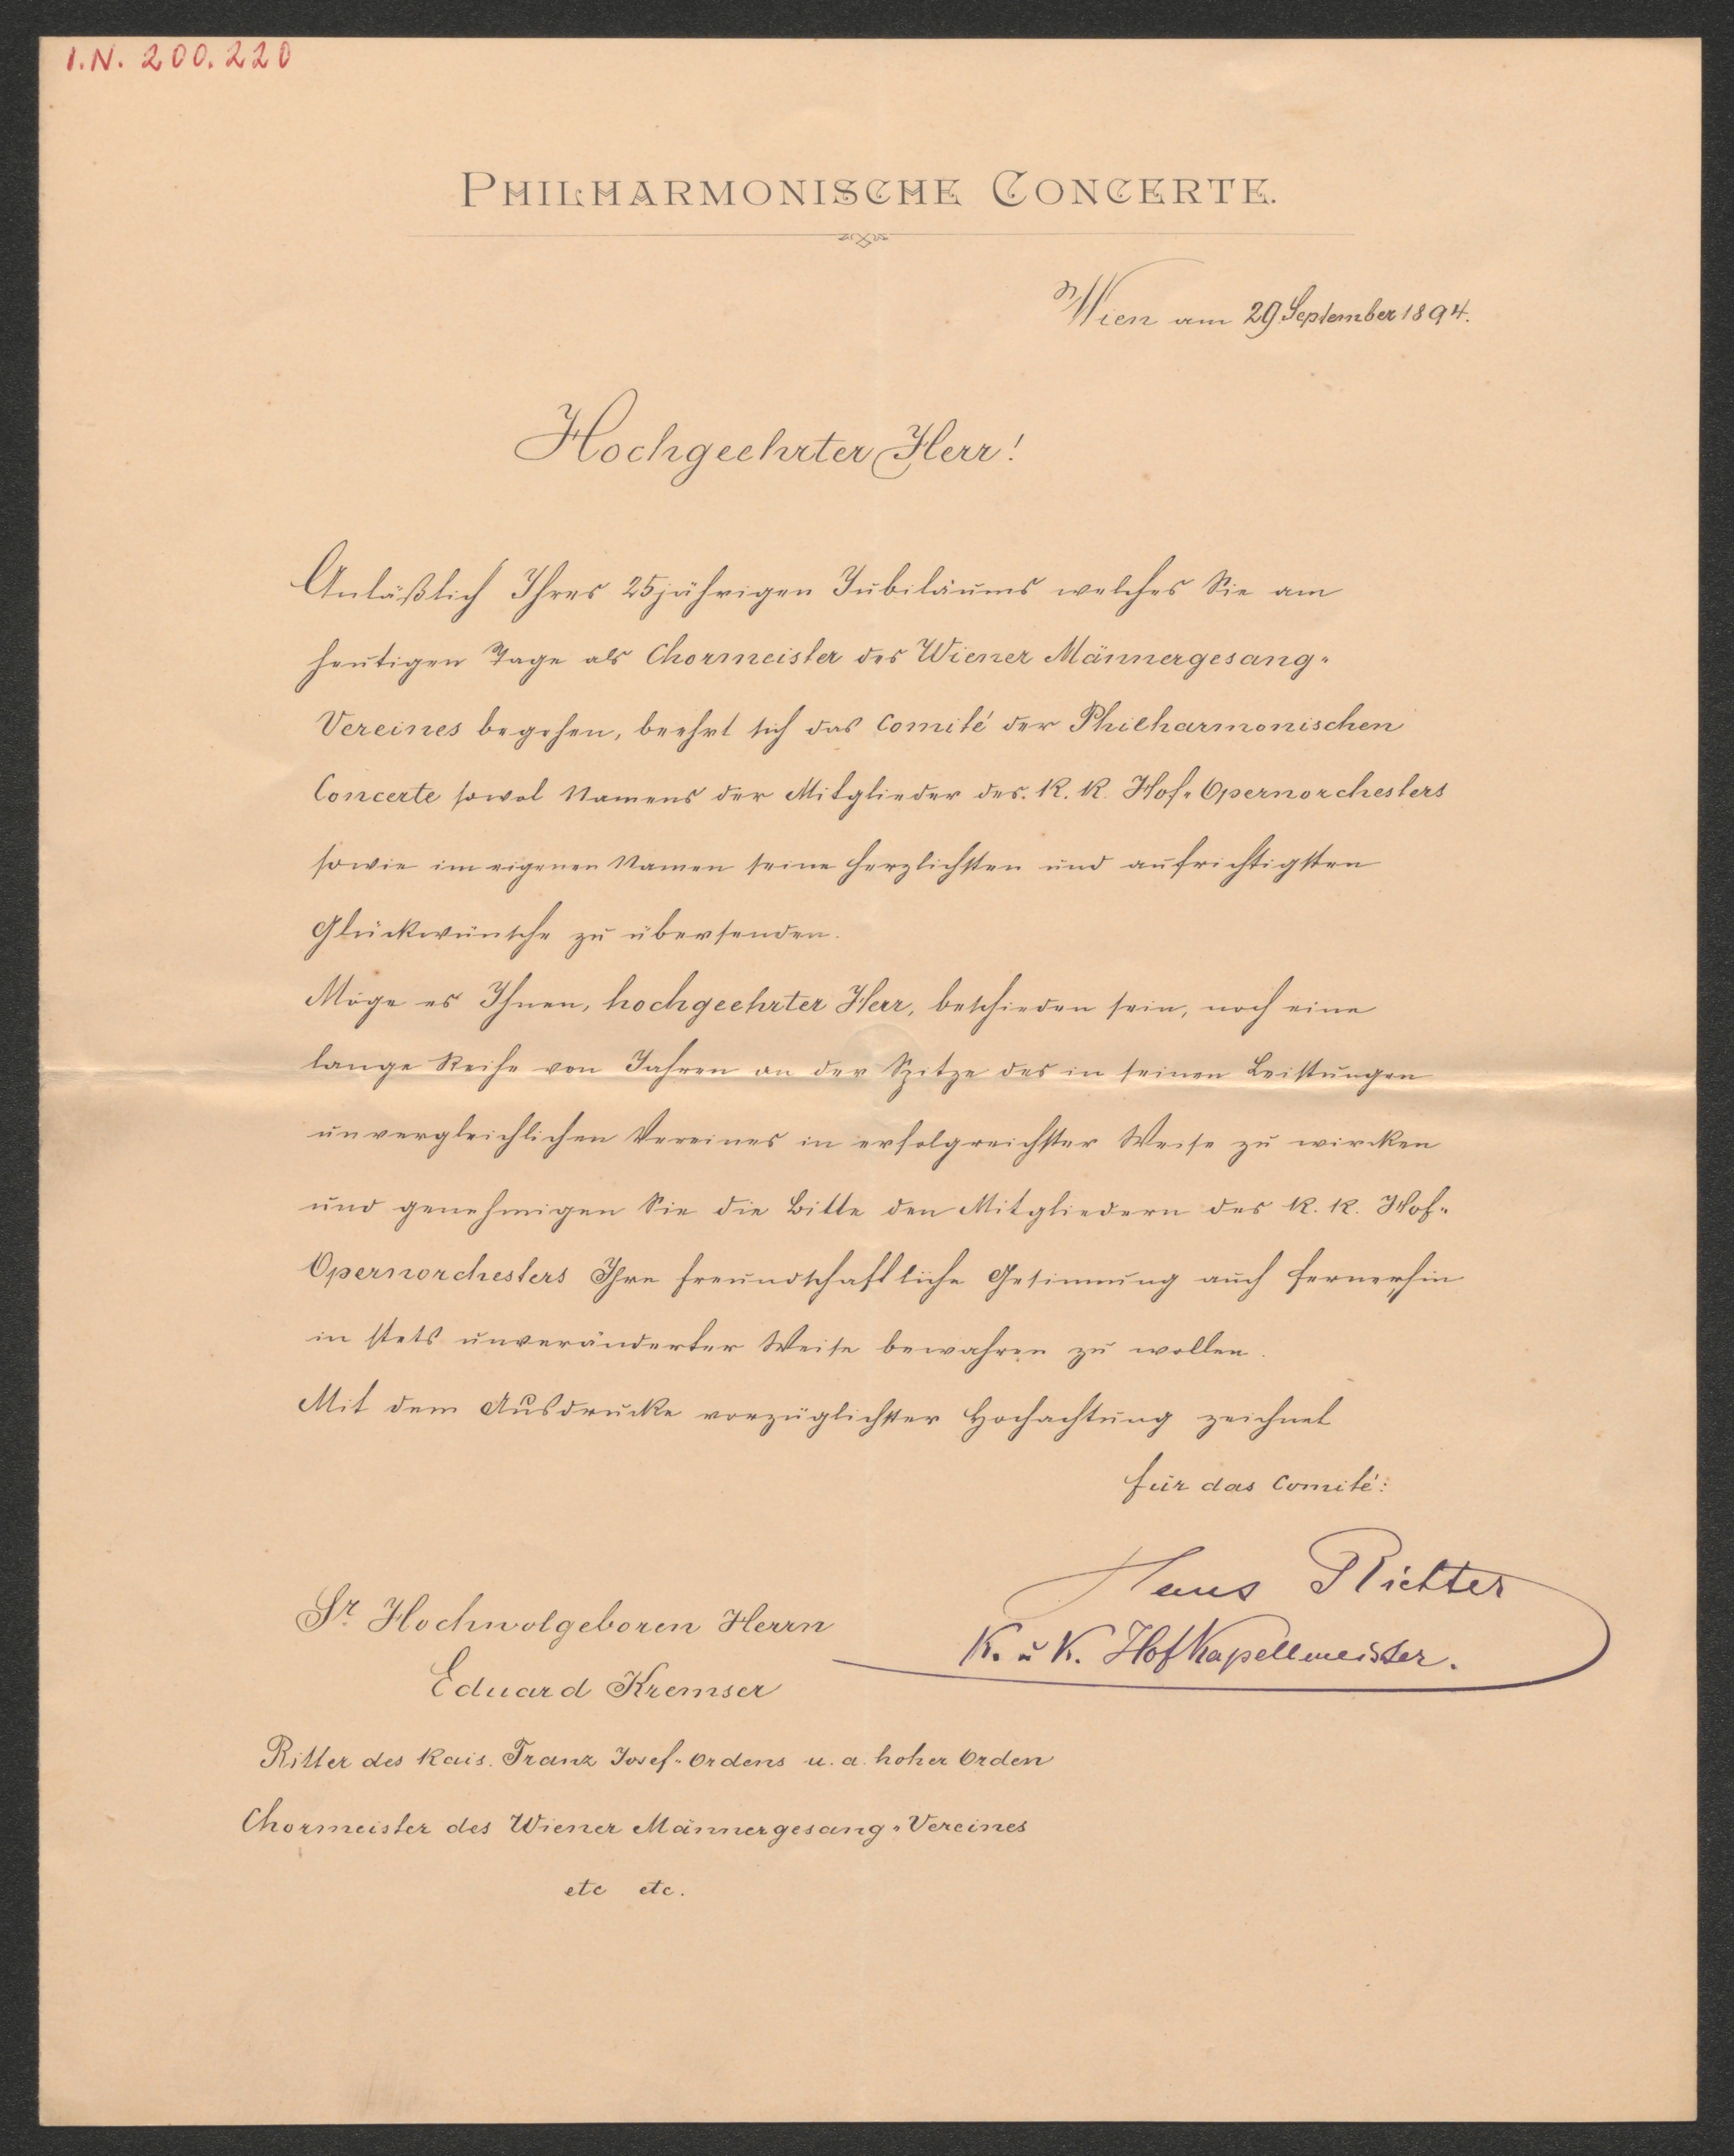 I.N. 200.220
PHILHARMONISCHE CONCERTE.
Wien am 29 September 1894.
Hochgeehrter Herr!
Anläßlich Ihres 25jährigen Jubiläums welches Sie am
heutigen Tage als Chormeister des Wiener Männergesang-
Vereines begehen, beehrt sich das Comité der Philharmonischen
Concerte sowol Namens der Mitglieder des K. K. Hof-Opernorchesters
sowie im eigenen Namen seine herzlichsten und aufrichtigsten
Glückwünsche zu übersenden.
Möge es Ihnen, hochgeehrter Herr, beschieden sein, noch eine
lange Reihe von Jahren an der Spitze des in seinen Leistungen
unvergleichlichen Vereines in erfolgreichster Weise zu wircken
und genehmigen Sie die Bitte den Mitgliedern des K. K. Hof-
Opernorchesters Ihre freundschaftliche Gesinnung auch fernerhin
in stets unveränderter Weise bewahren zu wollen.
Mit dem Ausdrucke vorzüglichster Hochachtung zeichnet
für das Comité:
Hans Richter
K. u K. HofKapellmeister.
Sr. Hochwolgeboren Herrn
Eduard Kremser
Ritter des Kais. Franz Josef-Ordens u. a. hoher Orden
Chormeister des Wiener Männergesang-Vereines
etc etc.